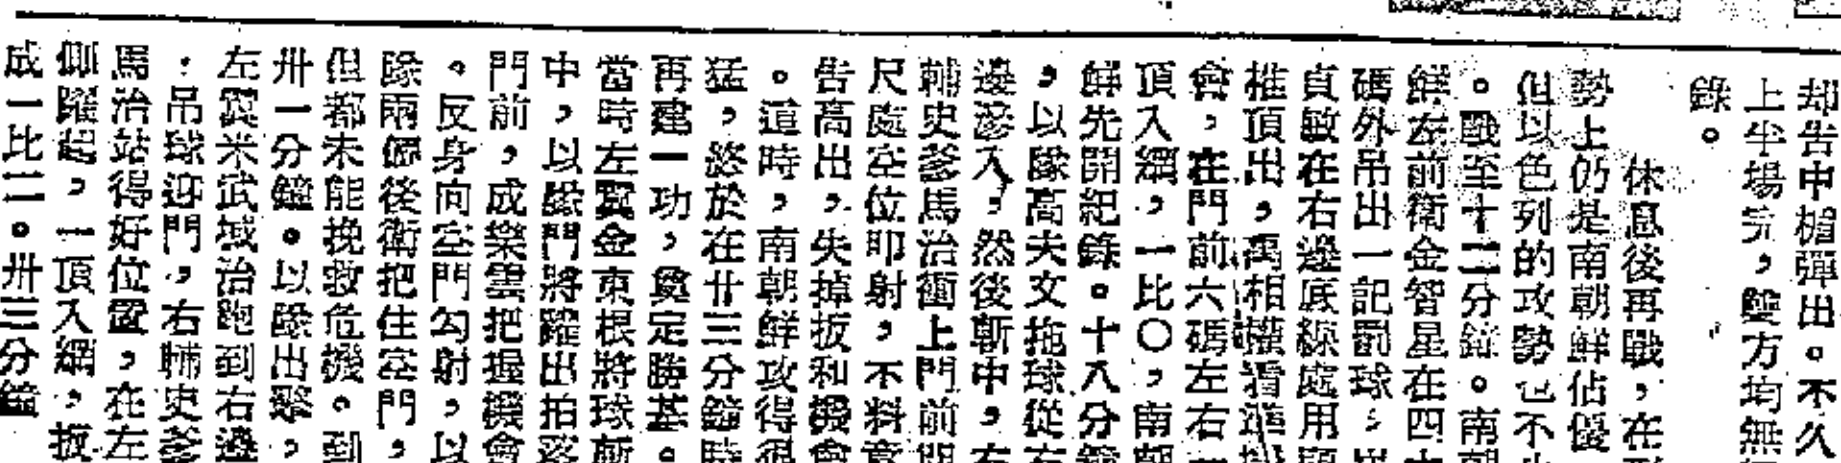 却告中楣彈出。不久
上半場完，雙方均無
錄。
休息後再戰，在
勢上仍是南朝鮮佔優
但以色列的攻勢也不
。戰至十二分鐘。南朝
鮮左前衛金智星在四十
碼外吊出一記罰球，
貞敏在右邊底線處用頭
推頂出，禹相權看準機
會，在門前六碼左右一
頂入網，一比〇，南朝
鮮先開紀錄。十八分鐘
，以隊高夫文拖球從右
邊滲入，然後斬中，右
輔史爹馬治衝上門前
尺處空位叩射，不料竟
告高出，失掉扳和機會
。這時，南朝鮮攻得很
猛，終於在廿三分鐘時
再建一功，奠定勝基。
當時左翼金東根將球斬
中，以隊門將躍出拍
門前，成樂雲把握機會
。反身向空門勾射，以
隊兩個後衛把住空門，
但都未能挽救危機。到
卅一分鐘。以隊出擊，
左翼米武域治跑到右邊
，吊球迎門，右輔史爹
馬治站得好位置，在左
仰躍起，一頂入網，扳
成一比二。卅三分鐘